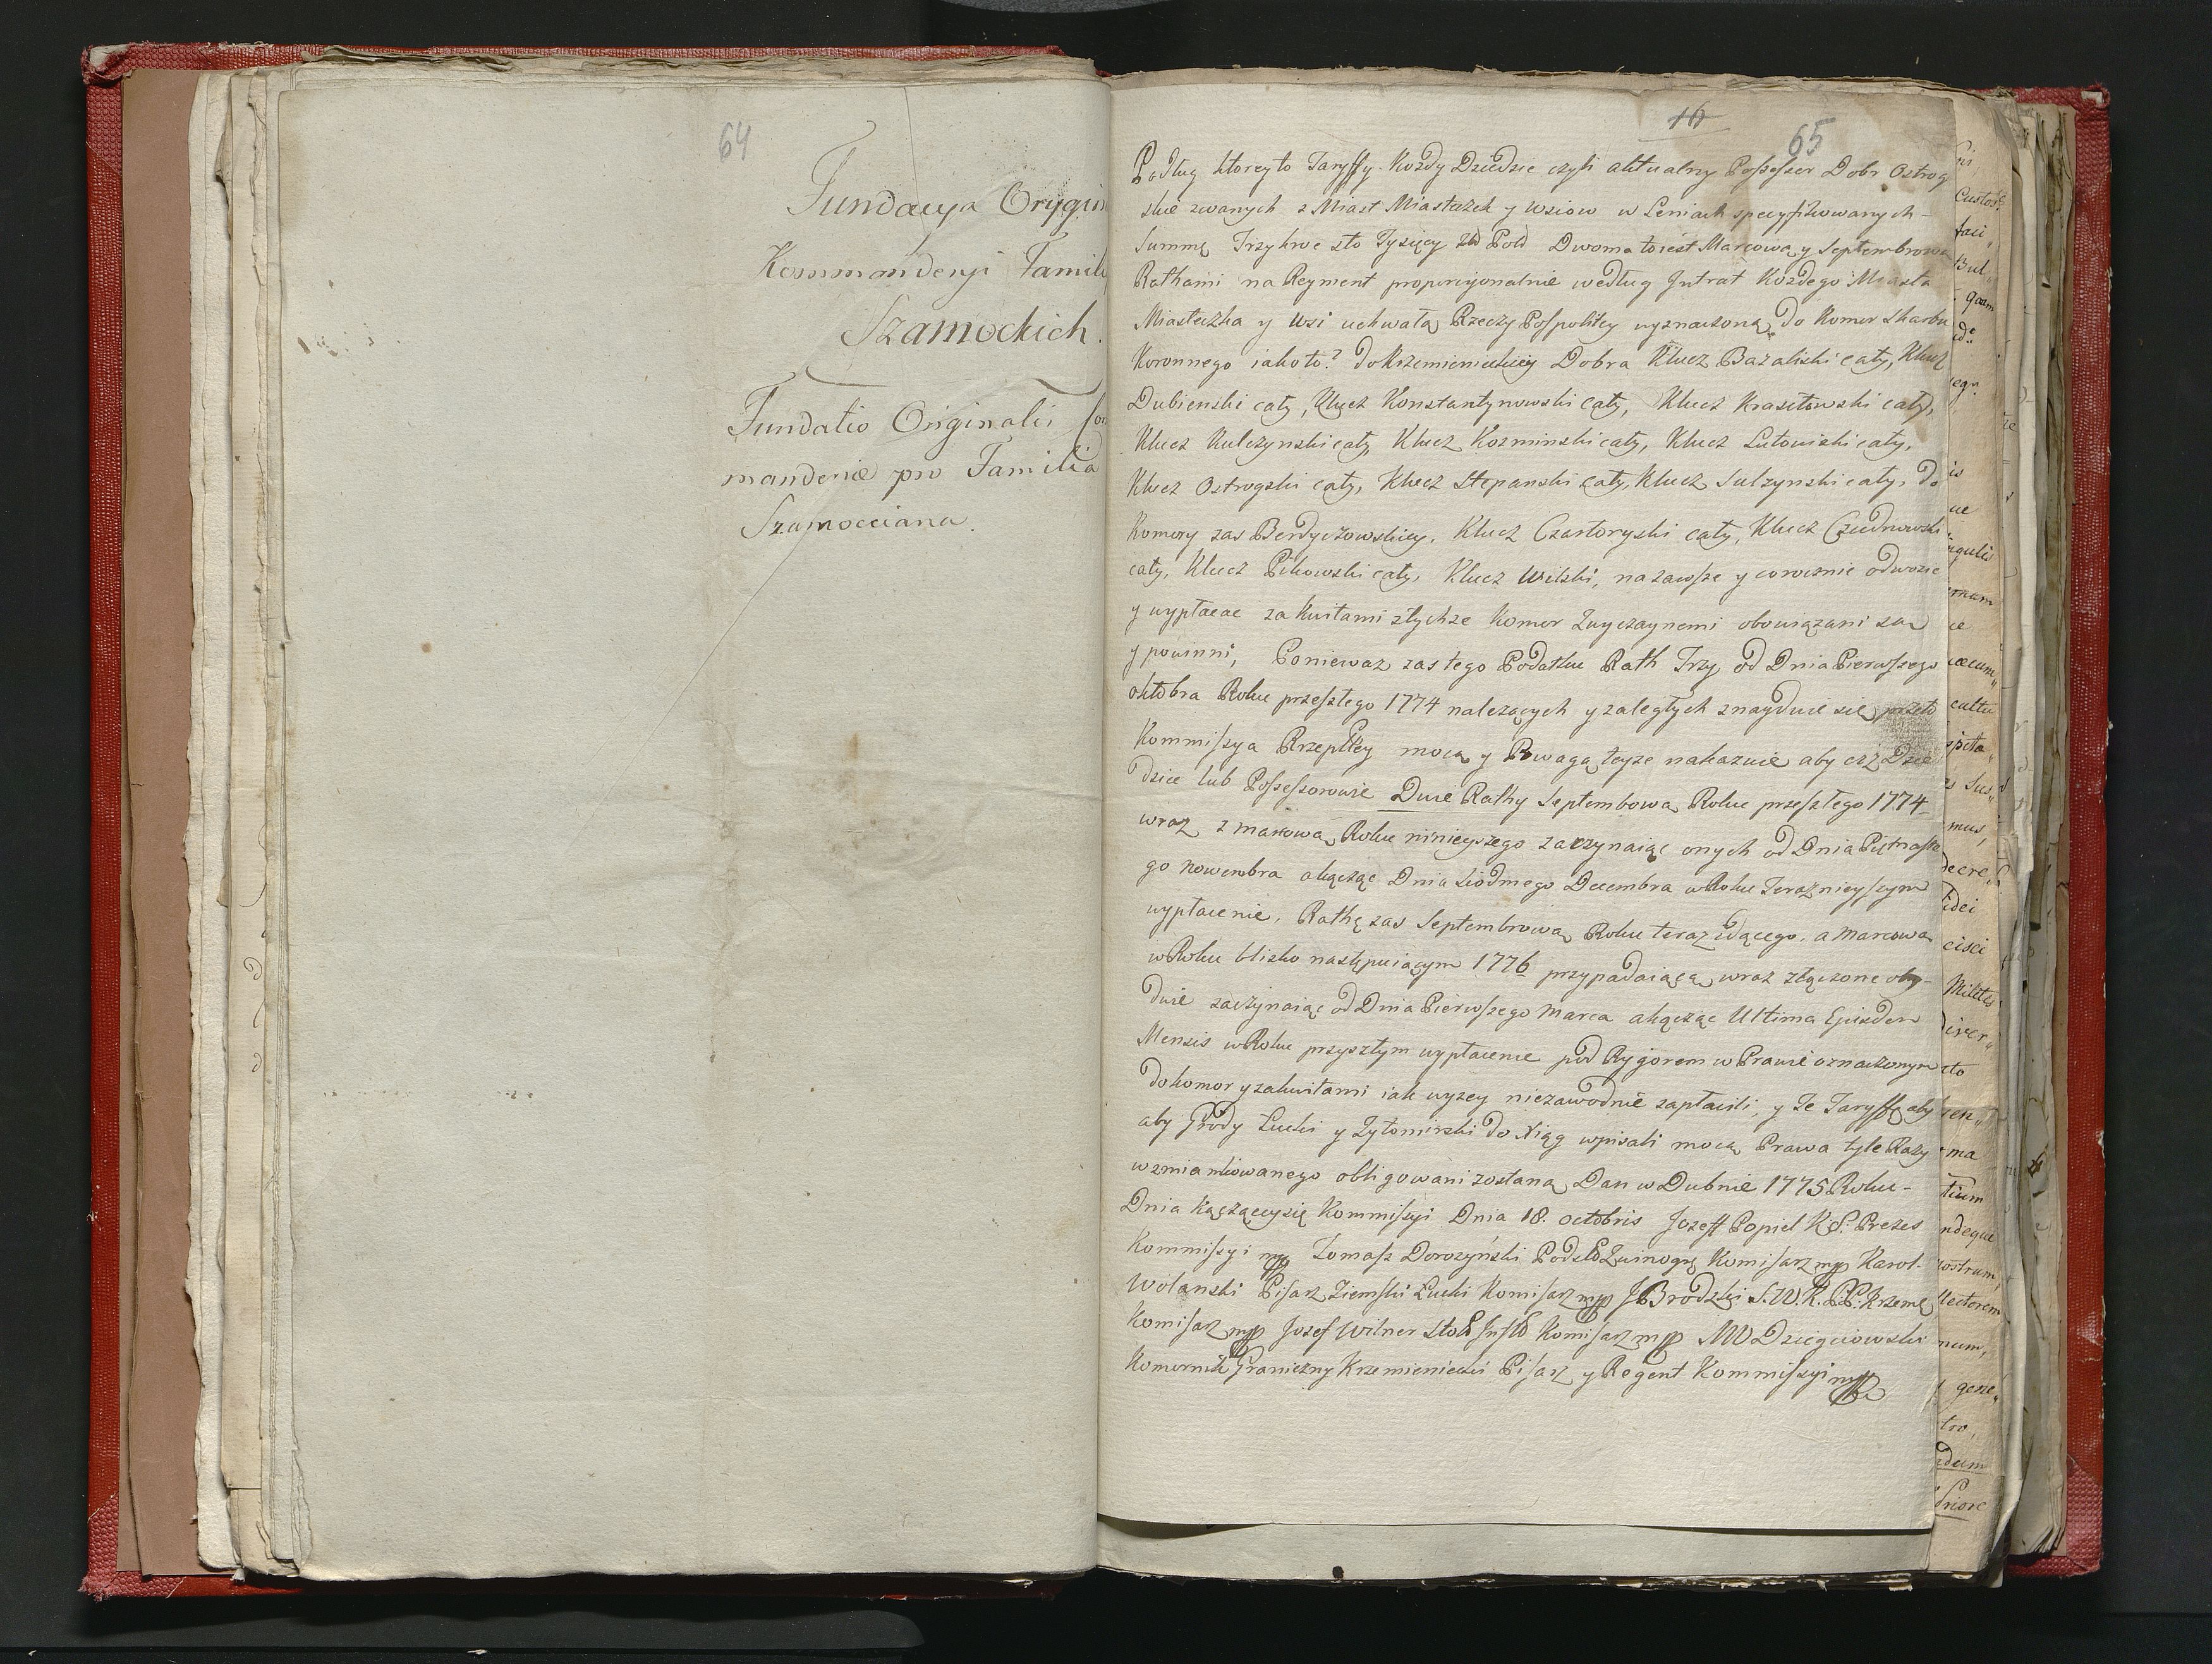 64
Fundacya Orygin
Kommanderyi Famili
Szamockich.
Fundatio Originalis Com
manderiæ pro Familia
Szamocciana.
16
65
Podług ktorey to Taryffy Kozdy Dziedzic czyli aktualny Possessor Dobr Ostrog
skie zwanych z Miast Miasteczek y wsiow w Leniach specyfikowanych -
Summę Trzykroc sto Tysięcy Zł Pold Dwoma toiest Marcową y Septembrową
Rathami na Reyment proporcyonalnie według Jntrat Kozdego Miasta
Miasteczka y Wsi uchwałą Rzeczy Pospolitey wyznaczoną, do Komor Skarbu
Koronnego iako to? do Krzemienieckiey Dobra Klucz Bazaliski cały, Klucz
Dubienski cały, Klucz Konstantynowski cały, Klucz Krasiłowski cały,
Klucz Kulczynski cały, Klucz Kozminski cały, Klucz Lutowiski cały,
Klucz Ostrogski cały, Klucz Stepanski cały, Klucz Sulzynski cały, do
Komory zas Berdyczowskiey, Klucz Czartoryski cały, Klucz Czudnowski
cały, Klucz Pikowski cały, Klucz Wilski, na zawsze y corocznie odwozic
y wypłacac za kwitami z tychze Komor Zwyczaynemi obowiązani są
y powinni, Poniewaz zas tego Podatku Rath Trzy od Dnia Pierwszego
oktobra Roku przeszłego 1774 nalezących y zaległych znayduie się przeto
Kommissya Rzepltey mocą y Powagą teyze nakazuie aby ciz Dzie
dzice lub Possessorowie Dwie Rathy Septembową Roku przeszłego 1774
wraz z marcową Roku ninieyszego zaczynaiąc onych od Dnia Piętnaste
go Nowembra a kącząc Dnia Siodmego Decembra w Roku Teraznieyszym
wypłacenie, Rathę zas Septembrową Roku teraz idącego, a Marcową
w Roku blisko następuiącym 1776 przypadaiącą wraz złączone oby-
dwie zaczynaiąc od Dnia Pierwszego Marca a kącząc Ultima Ejusdem
Mensis w Roku przyszłym wypłacenie pod Rygorem w Prawie oznaczonym
do komor y za kwitami iak wyzey niezawodnie zapłacili, y Te Taryffę aby
aby Grody Łucki y Zytomirski do Xiąg wpisali mocą Prawa tyle Razy
wzmiankowanego obligowani zostaną Dan w Dubnie 1775 Roku -
Dnia Kączącey się Kommissyi Dnia 18. octobris Jozeff Popiel K. S. Prezes
Kommissyi mp Tomasz Dorozyński Podsto Zwinogr Komisarz mp Karol
Wolanski Pisarz Ziemski Łucki Komisarz mp J Brodzki S. W. K. P. P. Krzemę
Komisarz mp Jozef Wilner Stol Jnfl Komisarz mp MW Dziegciowski
Komornik Graniczny Krzemieniecki Pisarz y Regent Kommissyi mp